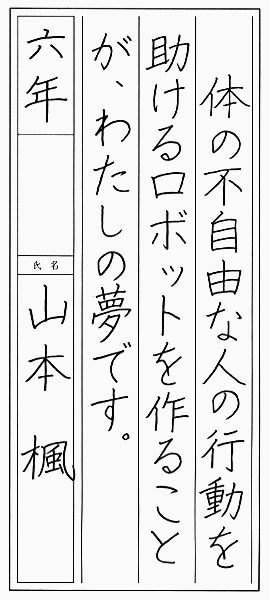 体の不自由な人の行動を
助けるロボットを作ること
が、わたしの夢です。
六年
氏名
山本 楓